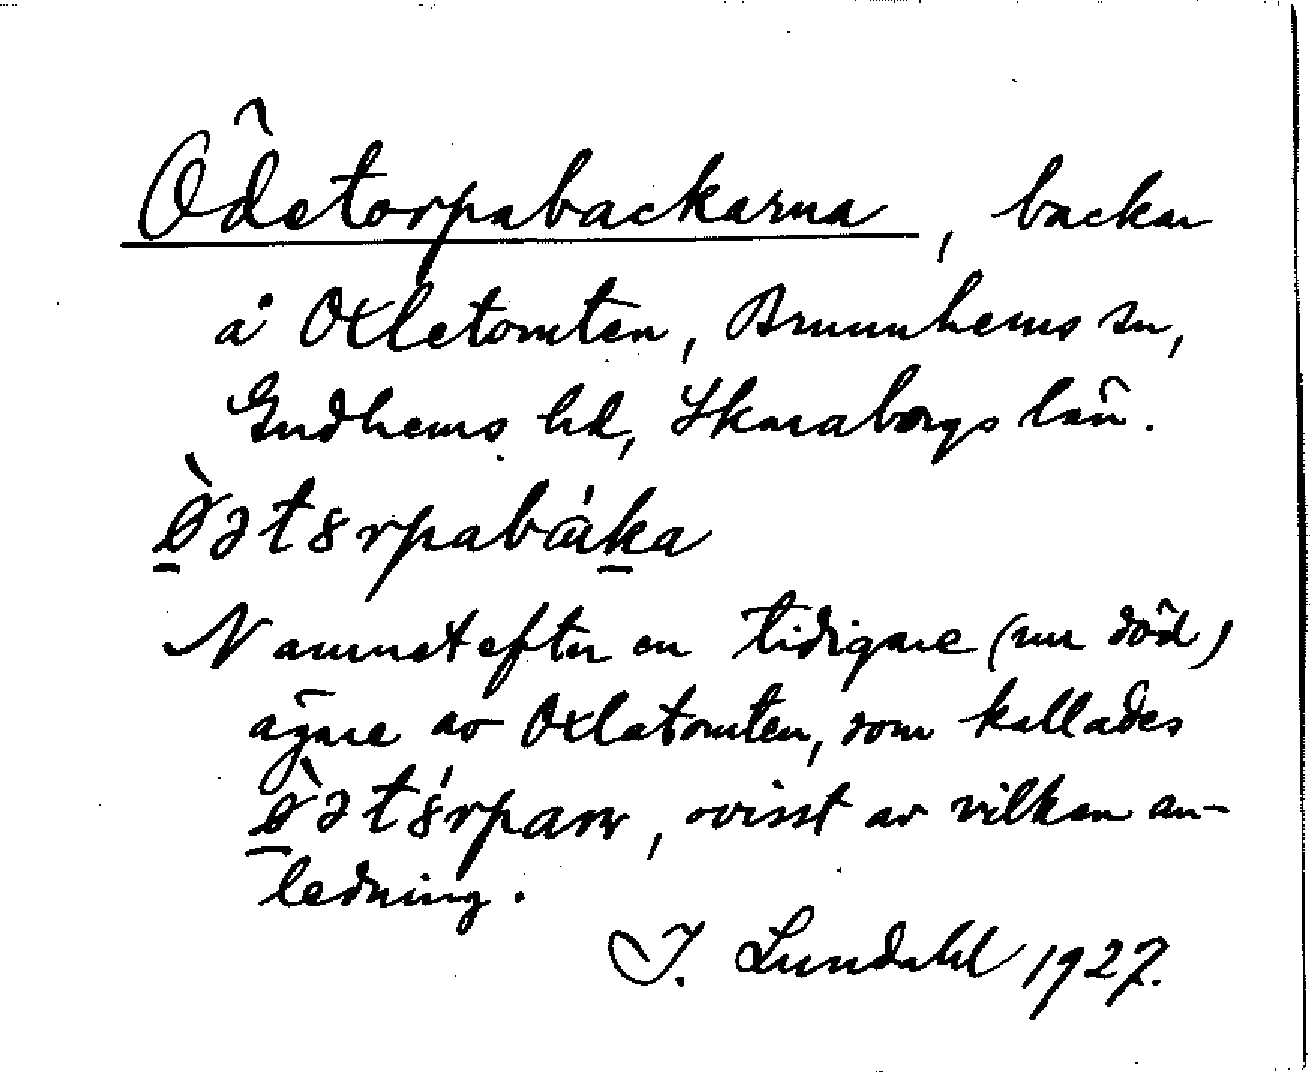 Ödetorpabackarna, backar
å Oxletomten, Brunnhems sn,
Gudhems hd, Skaraborgs län.
Namnet efter en tidigare (nu död)
ägare av Oxletomten, som kallades
ovisst av vilken an-
ledning.
I. Lundahl 1927.